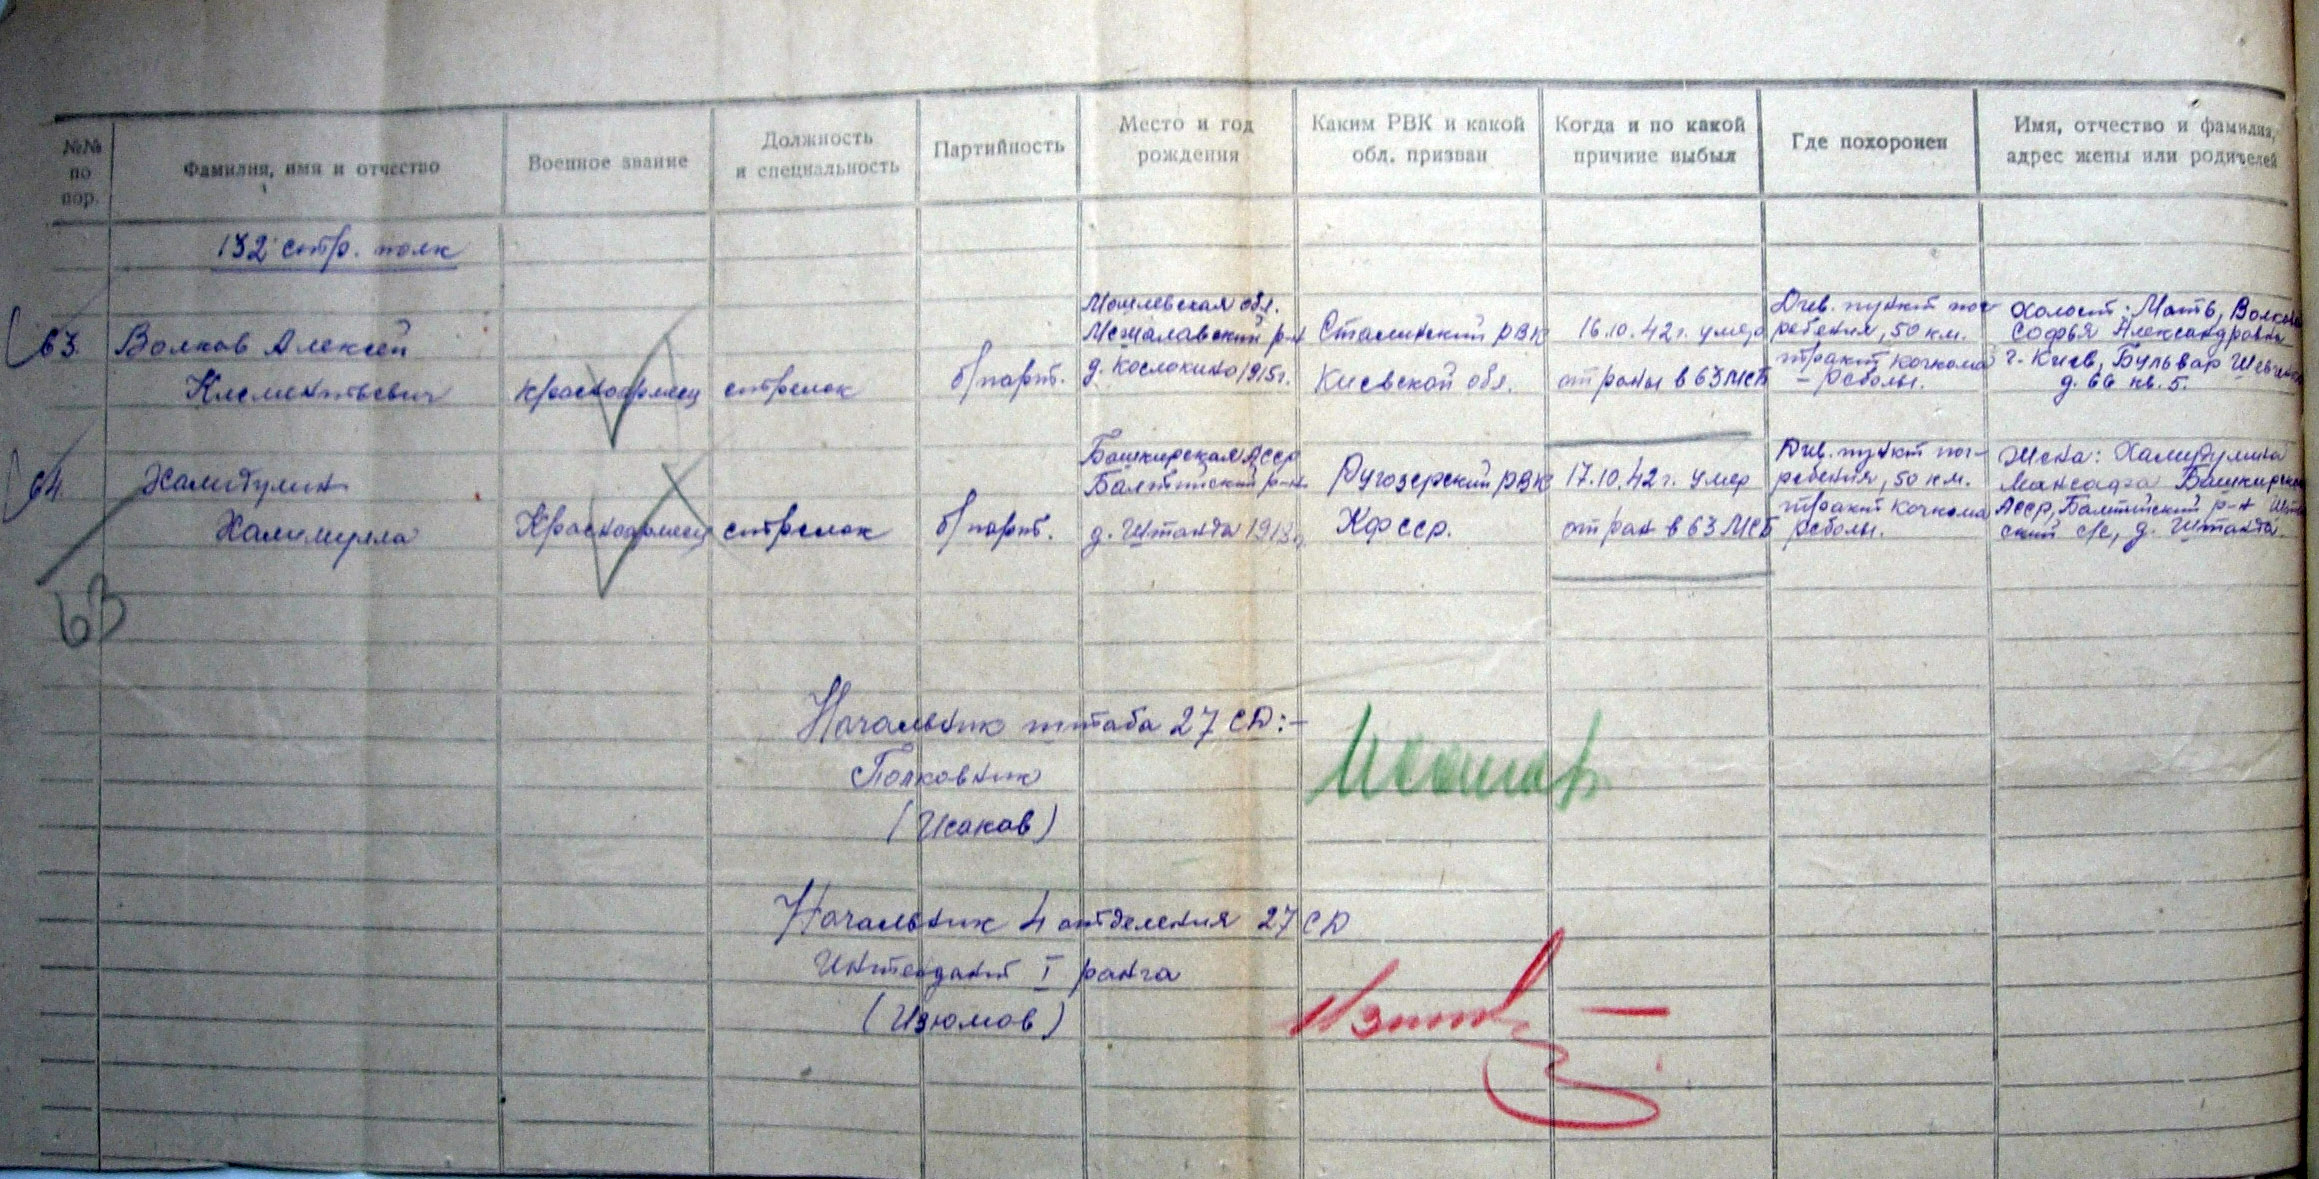 №№ по пор.
Фамилия, имя и отчество
Военное звание
Должность и специальность
Партийность
Место и год рождения
Каким РВК и какой обл. призван
Когда и по какой причине выбыл
Где похоронен
Имя, отчество и фамилия, адрес жены или родителей
132 стр. полк
63.
Волков Алексей
Климентьевич
красноармеец
стрелок
б/парт.
Могилевская обл.
Мстиславский р-н
1915г.
Сталинский РВК
Киевской обл.
16.10.42г. умер
от раны в 63 МСБ
Див. пункт пог-
ребения, 50 км.
тракт Кочкома
- Реболы.
Холост: Мать, Волкова
Софья Александровна
г. Киев, Бульвар Шевченко
д. 66 кв. 5.
64
Халидулин
Халимулла
Красноармеец
стрелок
б/парт.
Башкирская АССР
Балтийский р-н
д. Штанда 1913г.
Ругозерский РВК
КФССР.
17.10.42г. умер
от ран в 63 МСБ
Див. пункт пог-
ребения, 50 км.
тракт Кочкома
Реболы.
Жена: Халидулина
Башкирская
АССР, Балтийский р-н
ский с/с, д. Штанда.
63
Начальник штаба 27 СД:-
Полковник
(Исаков)
Начальник 4 отделения 27 СД
Интендант I ранга
(Изюмов)